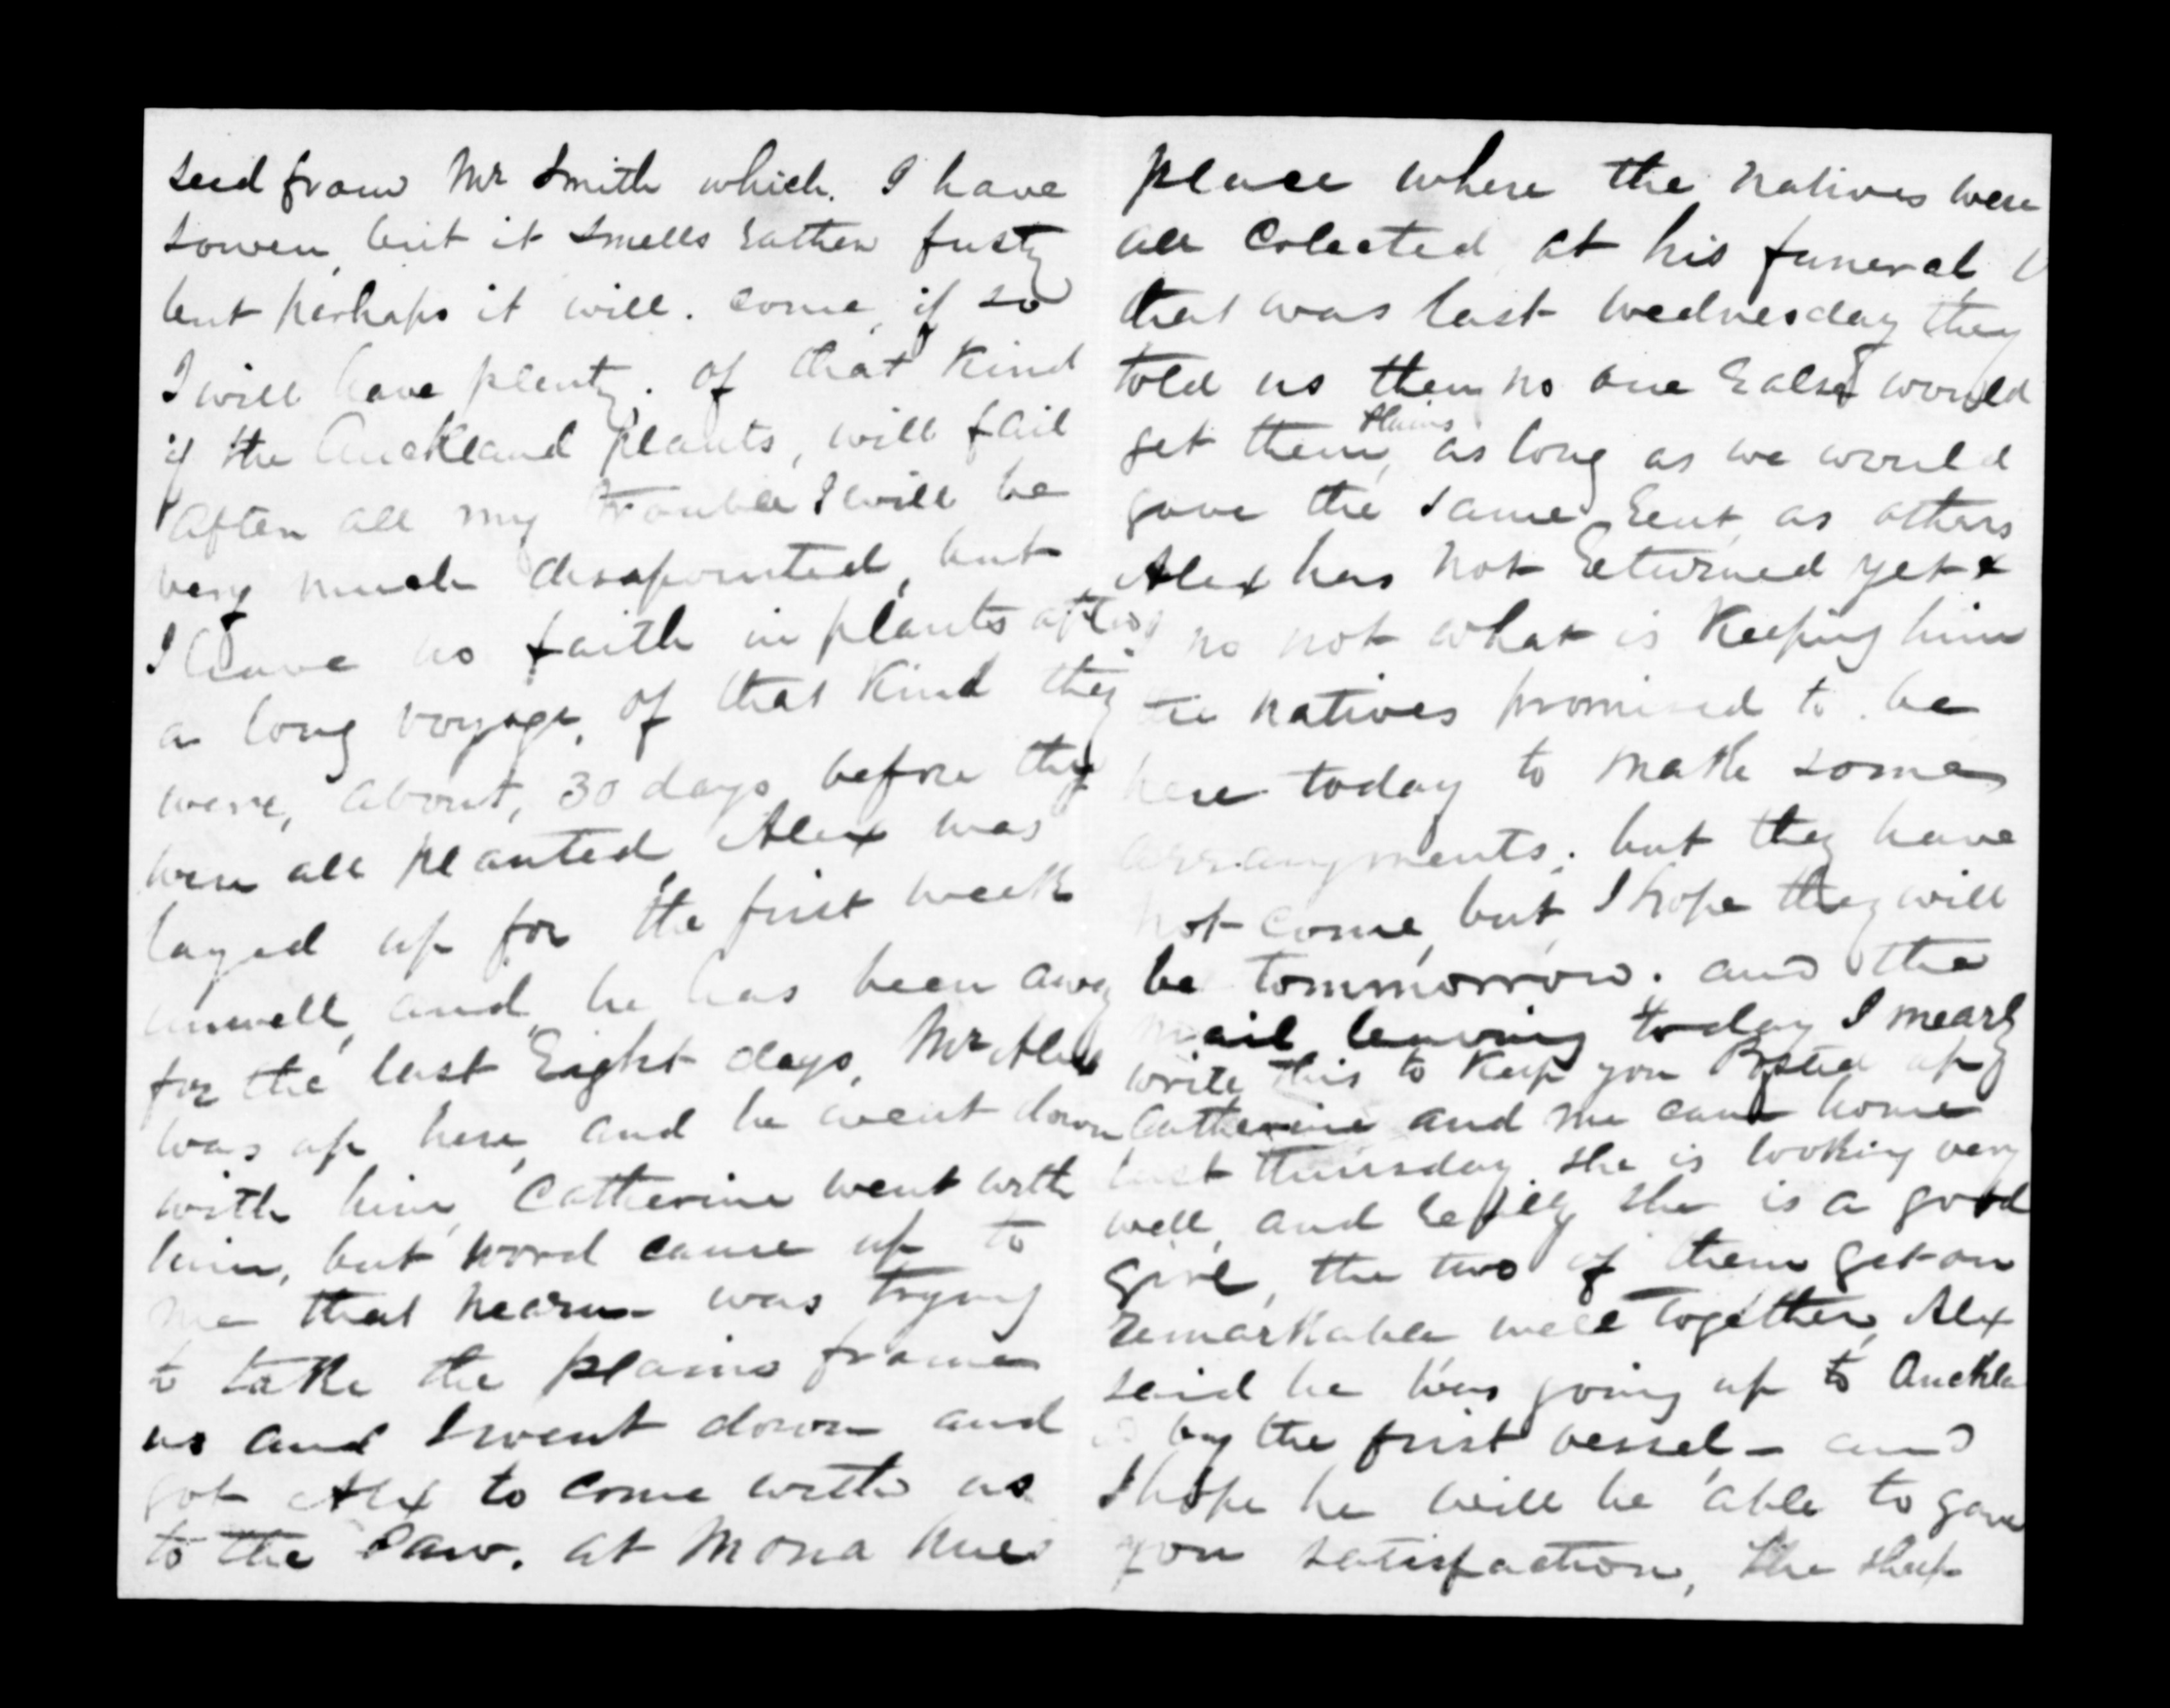 seed from Mr Smith which. I have
sowen, but it smells rather fusty
but perhaps it will. come, if so
I will have plenty. of that Kind
if the Auckland plants, will fail
after all my trouble I will be
very much disapointed, but
I have no faith in plants after
a long voyage, of that Kind they
were, about, 30 days before they
were all planted, Alex was
layed up for the first week
unwell, and he has been away
for the last Eight days, Mr Alex
was up here, and he went down
with him, Catherine went with
him, but word came up to
me that was trying
to take the plains from
us and I went down and
got Alex to come with us
to the Paw. at Mona
place where the natives were
all Colected at his funeral,
that was last wednesday they
told us then no one Ealse would
get them plains, as long as we would
gave the same Rent, as others
Alex has not Returned yet &
no not what is Keeping him
the natives promised to. be
here today to make some
arrangments. but they have
not come, but, I hope they will
be tommorrow. and the
mail leaving today I mearly
write this to Keep you Posted up
Catherine and me came home
last Thursday she is looking very
well, and she is a good
girl, the two of them get on
remarkable well together, Alex
said he was going up to Auckla
d by the first vessel - and
I hope he will be able to gave
you satisfaction, the sheep